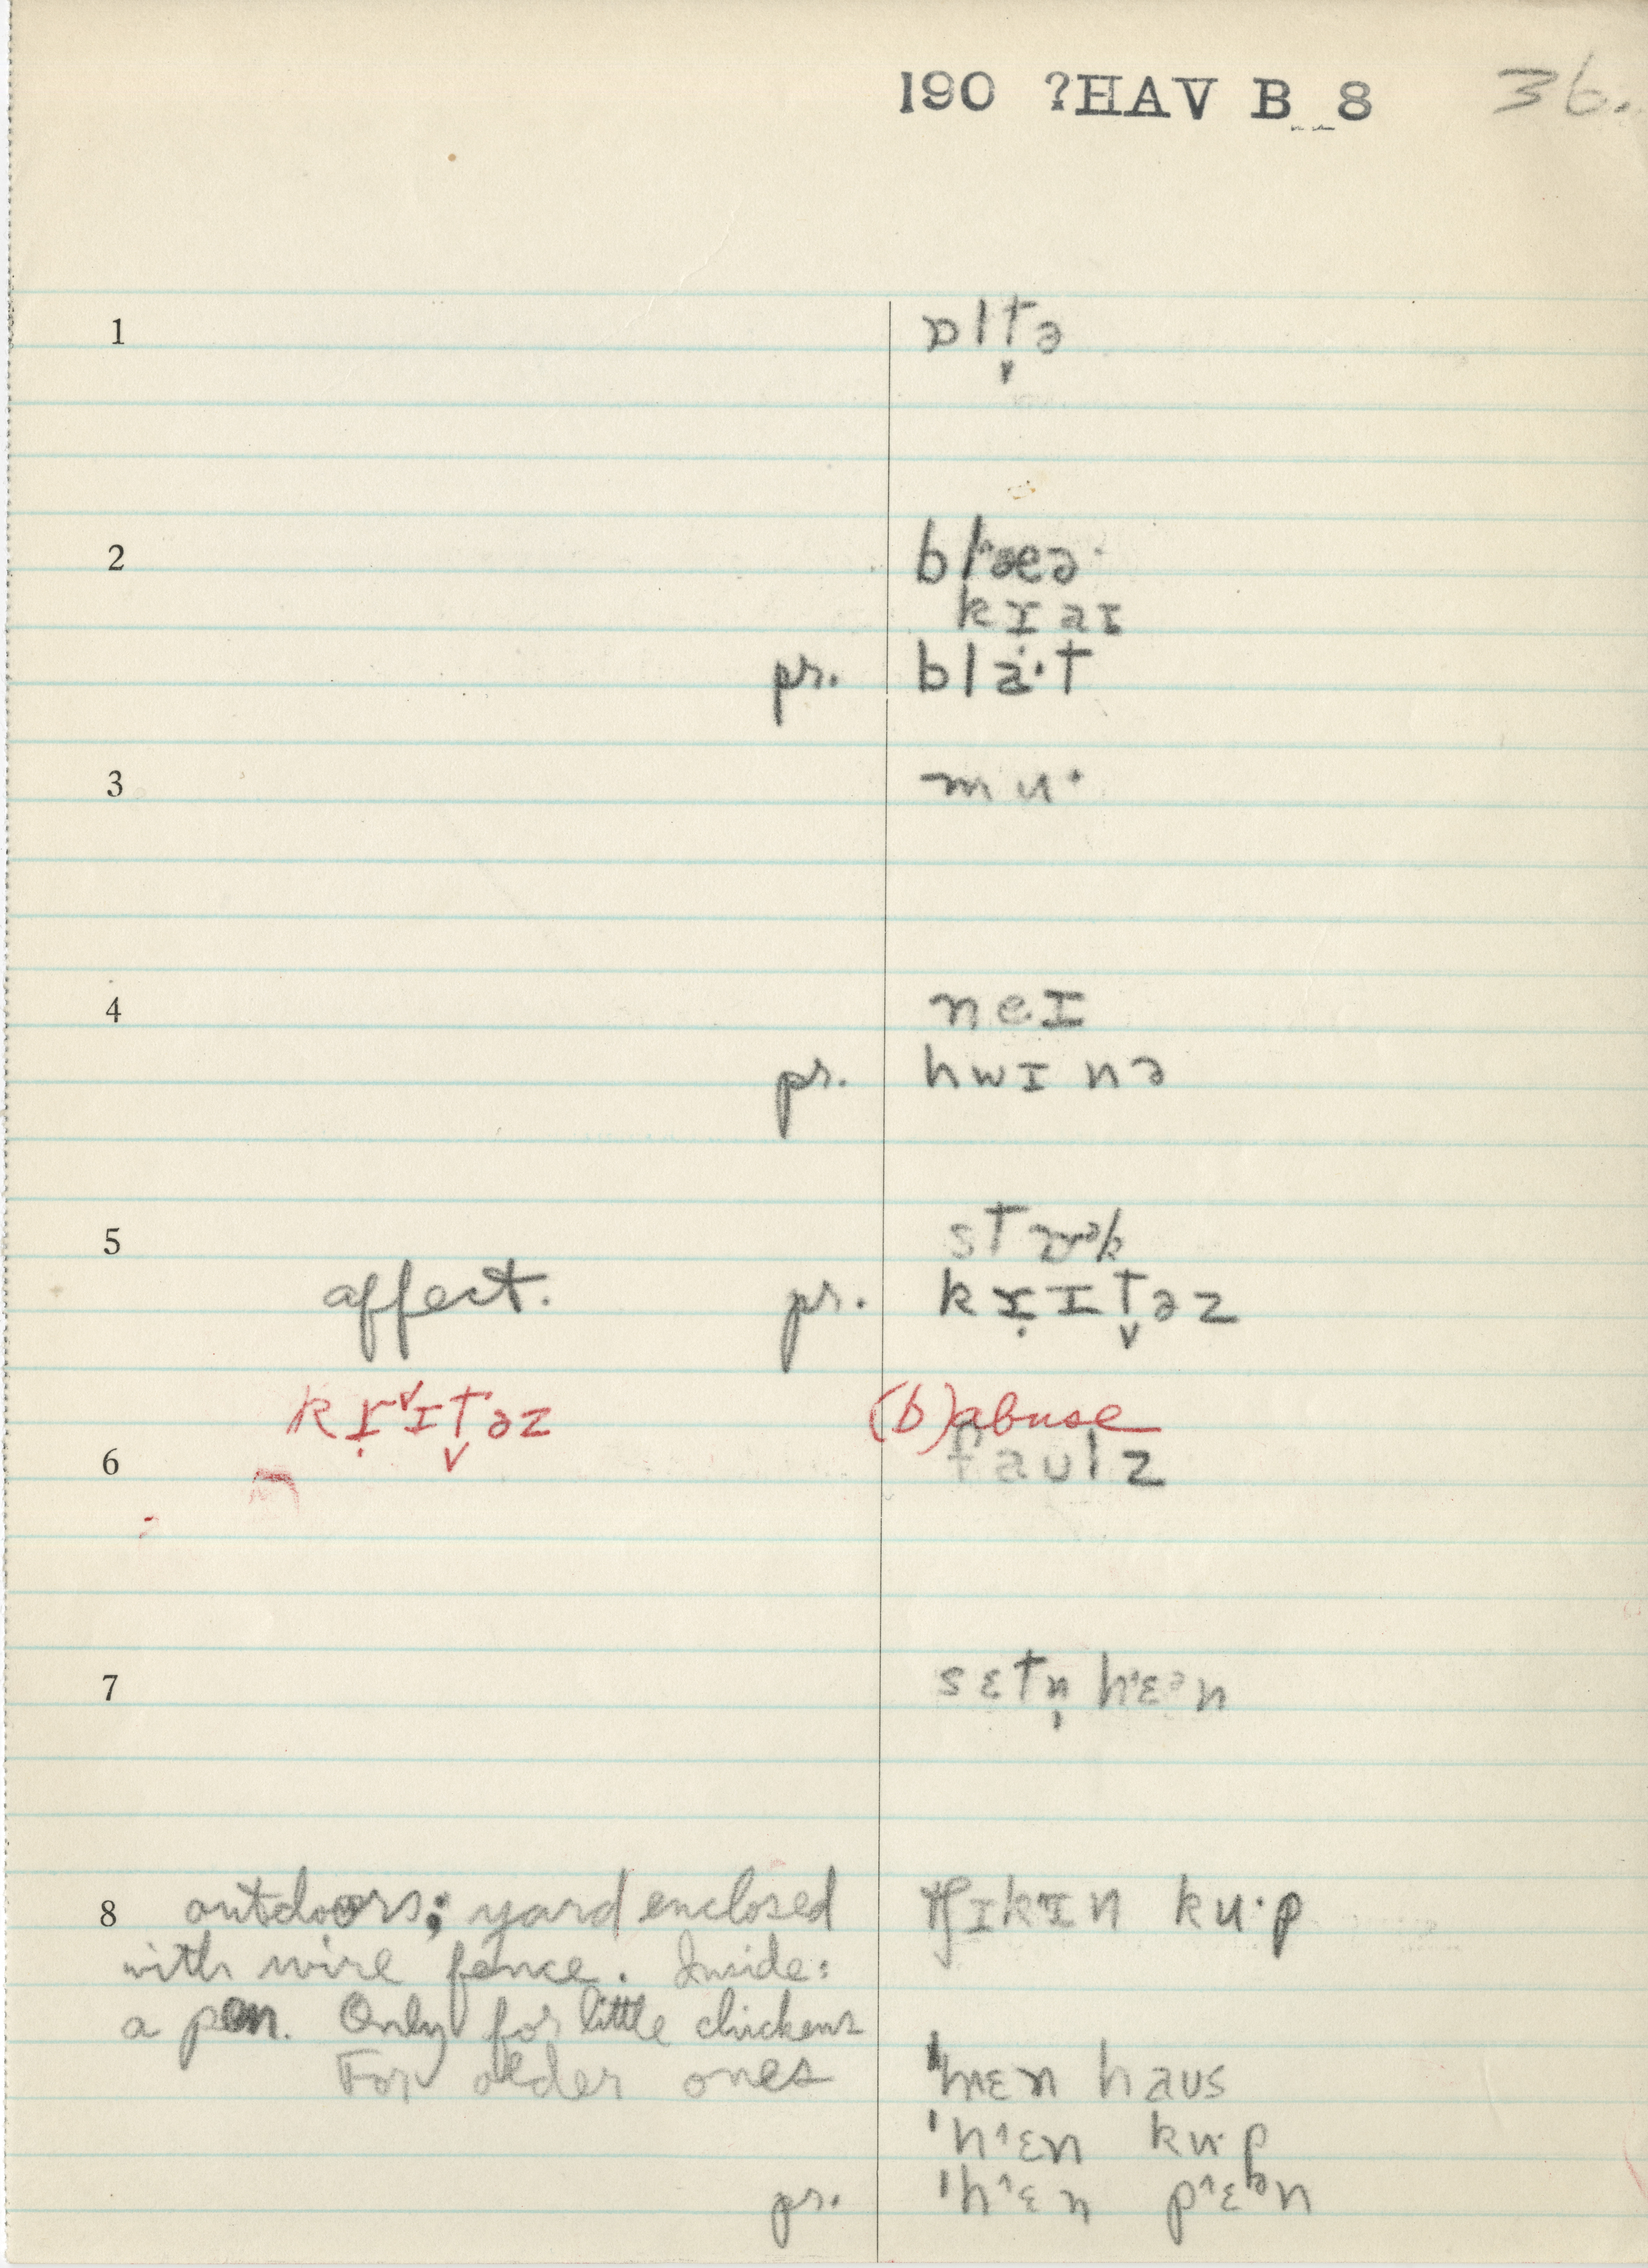 190 ?HAV B 8 36.
1 ɒltə̬
2 blæə
kɪ̣aɪ
pr. bla·t
3 mu·
4 neɪ
pr. hwɪnə
5 st
affect. pr. krɪt̬əz
krɪt̬əz (b) abuse
6 faulz
7 sɛtn̩ hɛən
8 outdoors; yard enclosed ku·p
with wire fence. Inside:
a pen. Only for little chickens
For older ones 'hɛn haus
'hɛn ku·p
pr. 'hɛn pɛən